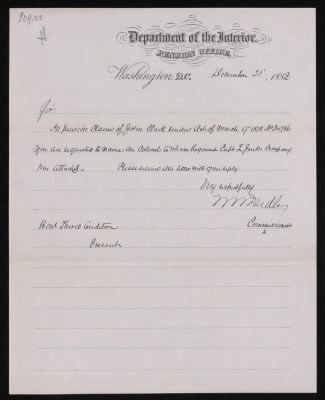 Department of the Interior,
PENSION OFFICE,
Washington, D.C. December 21", 1882
Sir:
In pension Claim of John Clark under Act of March 9" 1878
You are requested to name the Colonel to whose Regiment Capt Z Jenks Company
was attached.- Please return this letter with your reply.
Very respectfully
W W Dudley
Commissioner
Hon
Present